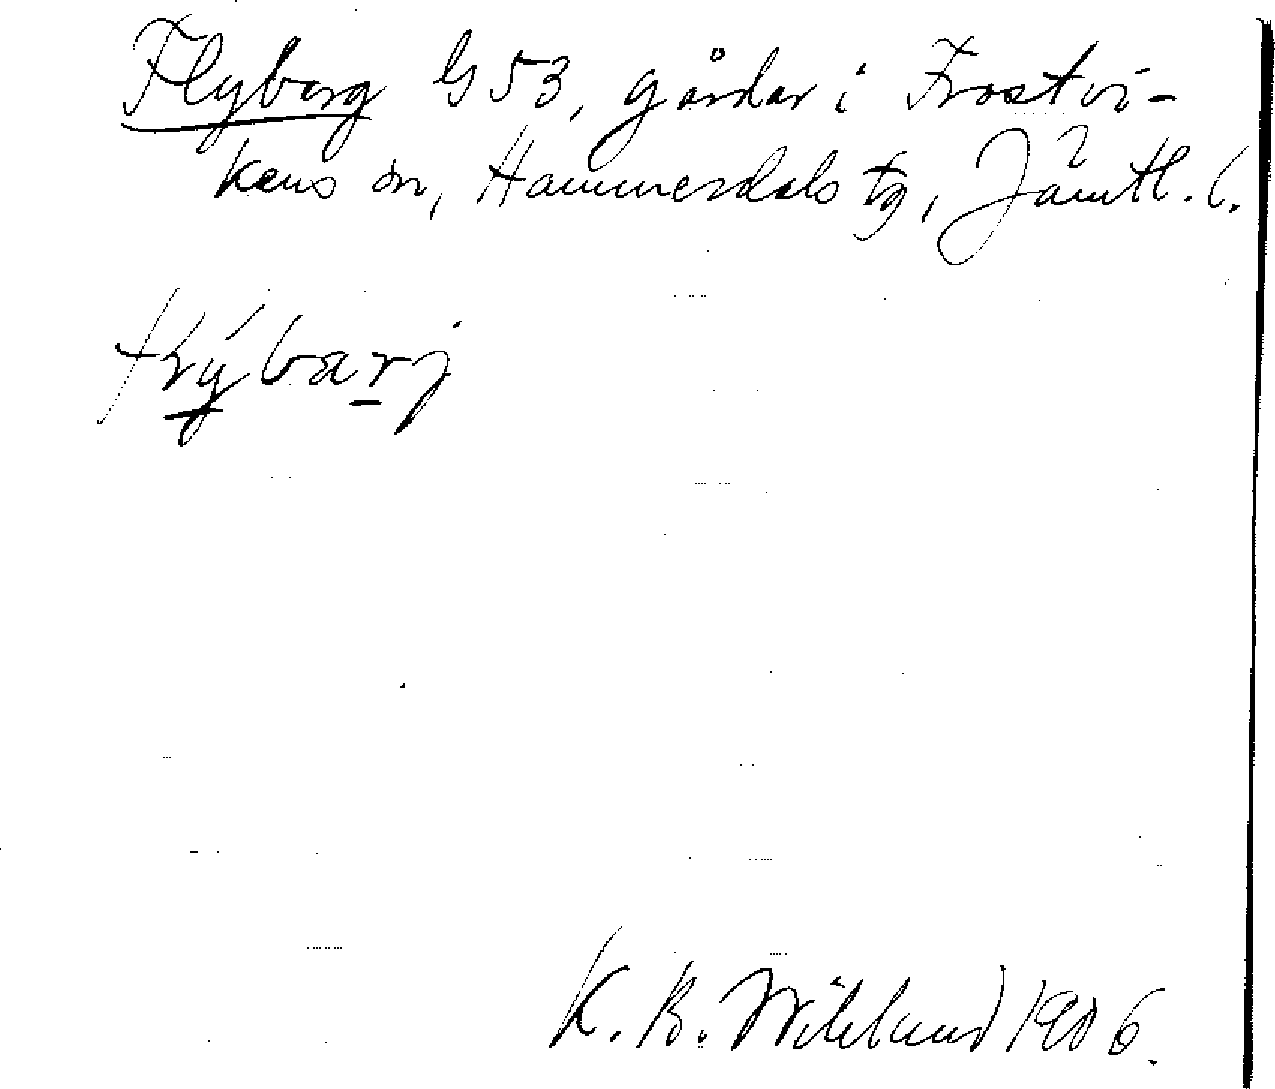 Flyberg G 53, gårdar i Frostvi-
kens sn, Hammerdals tg, Jämtl. l.
K. B. Wiklund 1906.